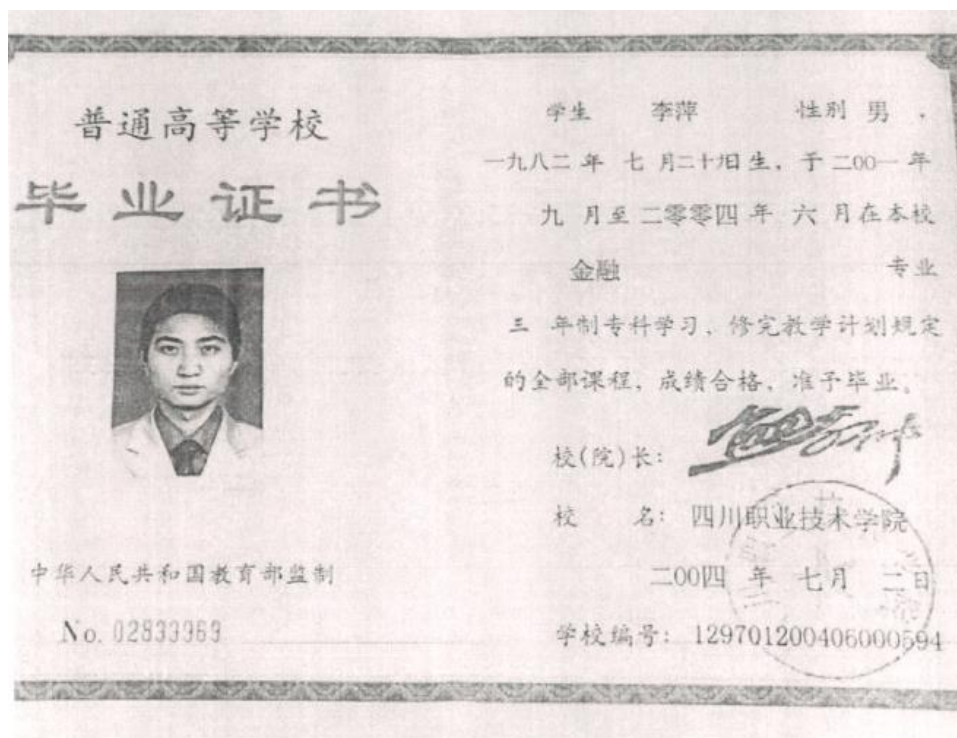 普通高等学校
毕业证书
中华人民共和国教育部监制
No. 02833969
学生 李萍 性别 男 ,
一九八二 年 七 月二十 日生, 于 二00一 年
九 月至 二零零四 年 六 月在本校
金融 专业
三 年制专科学习, 修完教学计划规定
的全部课程, 成绩合格, 准予毕业。
校(院)长:
校 名: 四川职业技术学院
二00四 年 七月 二日
学校编号: 129701200406000594